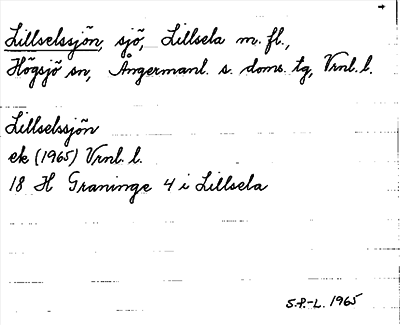 Lillselssjön, sjö, Lillsela m. fl.,
Högsjö sn, Ångermanl. s. doms. tg, Vrnl. l.
Lillselssjön
ek (1965) Vrnl. l.
18 H Graninge 4 i Lillsela
S.P.-L. 1965